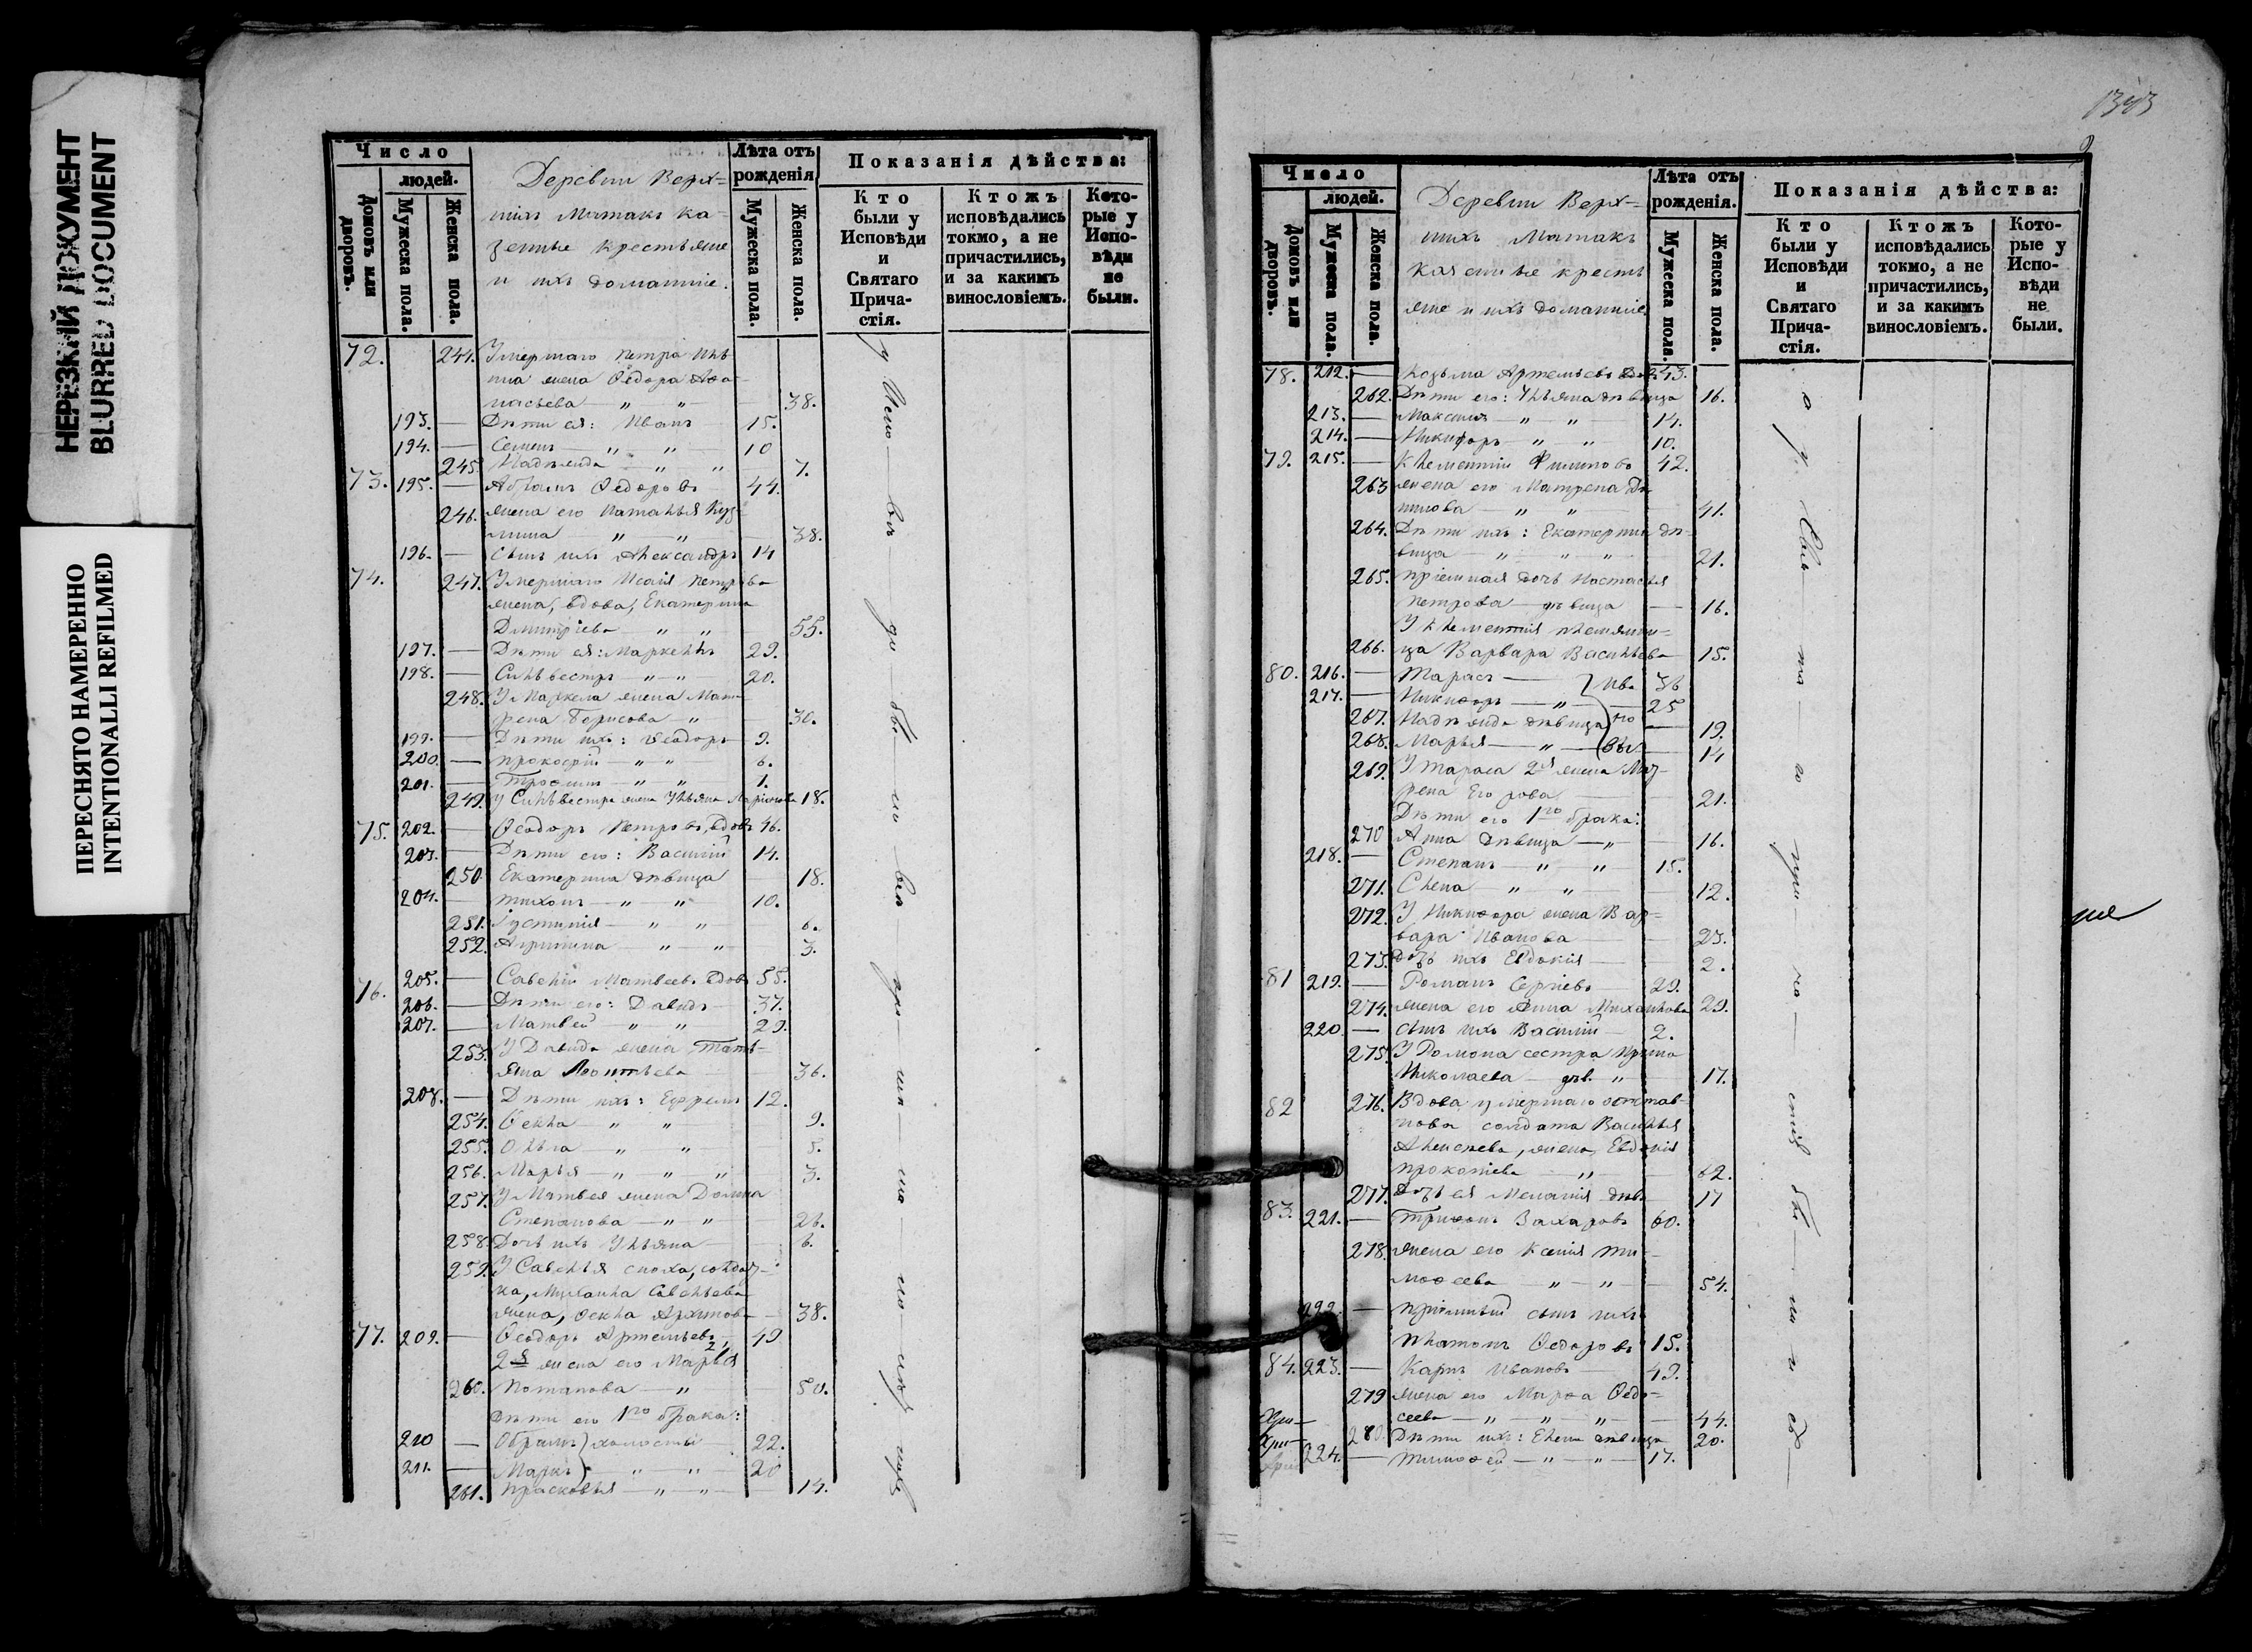 НЕРЕЗКИЙ ДОКУМЕНТ
BLURRED DOCUMENT
ПЕРЕСНЯТО НАМЕРЕННО
INTENTIONALLI REFILMED
Число
людей.
Домовъ или дворовъ.
Мужеска пола.
Женска пола.
Деревни Верх=
нихъ Матакъ ка-
зенные крестьяне
и ихъ домашніе.
Лѣта отъ рожденія
Мужеска пола.
Женска пола.
Показанія дѣйства:
Кто были у Исповѣди и Святаго Прича- стія.
Ктожъ исповѣдались токмо, а не причастились, и за какимъ винословіемъ.
Кото- рые у Испо- вѣди не были.
72. 244. Умершаго Петра Иль
ина жена Ѳедора Аѳа-
насьева — " — " 38.
193. — Дѣти ея: Иванъ 15.
194. — Семенъ — " — " 10
245. Надежда — " — " 7.
73. 195. — Абрамъ Ѳедоровъ 44.
246. жена его Наталья Куз-
мина — " — " 38.
196. — Сынъ ихъ Александръ 14
74. 247. Умершаго Исаія Петрова
жена, вдова, Екатерина
Дмитріева — " — " 55.
197. — Дѣти ея: Маркеллъ 29.
198. — Сильвестръ — " — " 20.
248. У Маркела жена Мат-
рена Борисова — " 30.
199. — Дѣти ихъ: Ѳеодоръ 9.
200. — Прокофій — " " 6.
201. — Трофимъ — " — " 1.
249. У Сильвестра жена Ульяна Маркова 18.
75. 202. — Ѳеодоръ Петровъ, вдовъ 46.
203. — Дѣти его: Василій 14.
250. Екатерина дѣвица — 18.
204. — Тихонъ — " — " 10.
251. Іустинія — " — " 6.
252. Агрипина — " — " 3.
76. 205. — Савелій Матвеевъ вдовъ 55.
206. — Дѣти его: Давидъ 37.
207. — Матвей — " — " 29.
253. У Давида жена Тать-
яна Леонтьева 36.
208. — Дѣти ихъ: Ефремъ 12.
254. Ѳекла — " — " 9.
255. Ольга — " — " 5.
256. Марья — " — " — " 3.
257. У Матвея жена Домна
Степанова — " — " 26.
258. Дочь ихъ Ульяна 6.
259. У Савелья сноха, солдат-
ка, Михаила Савельева
жена, Ѳекла Архипова 38.
77. 209. — Ѳеодоръ Артемьевъ, 49
2я жена его Марья
260. Потапова — " 50.
Дѣти его 1го брака:
210 — Обрамъ } холосты 22.
211. — Маркъ } — " — " 20
261. Прасковья — " — " — 14.
1343
9
Число
людей.
Домовъ или дворовъ.
Мужеска пола.
Женска пола.
Деревни Верх=
нихъ Матакъ
казенные кресть
яне и ихъ домашніе
Лѣта отъ рожденія.
Мужеска пола.
Женска пола.
Показанія дѣйства:
Кто были у Исповѣди и Святаго Прича- стія.
Ктожъ исповѣдались токмо, а не причастились, и за какимъ винословіемъ.
Кото- рые у Испо- вѣди не были.
78. 212. — Козьма Артемьевъ вдовъ 43.
262. Дѣти его: Ульяна дѣвица 16.
213. — Максимъ — " — " 14.
214. — Никифоръ — " — " 10.
79. 215. — Клементій Филиповъ 42.
263 жена его Матрена Да
нилова — " — " 41.
264. Дѣти ихъ: Екатерина дѣ-
вица — " — " — " 21.
265. Пріемная дочь Настасья
Петрова — дѣвица — 16.
У Клементія племянни=
266. ца Варвара Васильева 15.
80. 216. — Тарасъ — } Ива 36
217. — Никифоръ — " — 25
267. Надежда дѣвица } но 19.
268. Марья — " — } вы 14
269. У Тараса 2я жена Мат-
рена Егорова 21.
Дѣти его 1го брака:
270 Анна дѣвица — " — 16.
218. — Степанъ — " — " 15.
271. Елена — " — " 12.
272. У Никифора жена Вар-
вара Иванова 23.
273. дочь ихъ Евдокія 2.
81 219. — Романъ Сергіевъ 29.
274. жена его Анна Михайлова 29.
220. — сынъ ихъ Василій 2.
275. У Романа сестра Ирина
Николаева — дѣв. " 17.
82 276. Вдова умершаго отстав-
нова солдата Василья
Алексѣева, жена, Евдокія
Прокопіева — " 62.
277. дочь ея Меланія дѣв. 17
83. 221. — Трифонъ Захаровъ 60.
278. жена его Ксенія Ти-
мофеева — " — " — 54.
222. — Пріемный сынъ ихъ
Платонъ Ѳедоровъ 15.
84. 223. — Карпъ Ивановъ 49.
279 жена его Марѳа Ѳедо=
сеева — " — " — " 44.
280. Дѣти ихъ: Елена дѣвица 20.
224. — Тимофей — " — " 17.